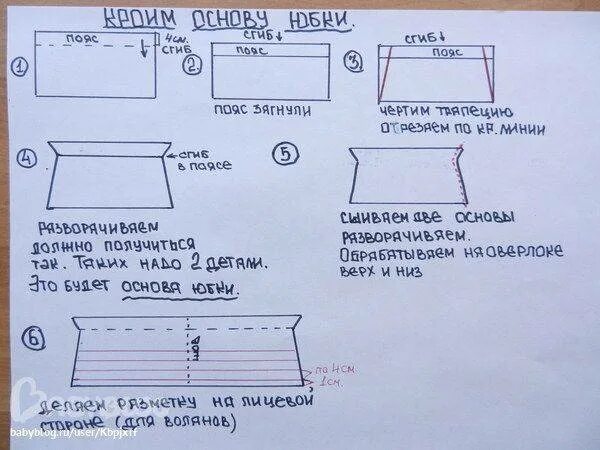 КРОИМ ОСНОВУ ЮБКИ.
1
ПОЯС
4 СМ.
СГИБ
2
СГИБ
ПОЯС
ПОЯС ЗАГНУЛИ
3
СГИБ
ПОЯС
ЧЕРТИМ ТРАПЕЦИЮ
ОТРЕЗАЕМ ПО КР. ЛИНИИ
4
СГИБ
В ПОЯСЕ
РАЗВОРАЧИВАЕМ
ДОЛЖНО ПОЛУЧИТЬСЯ
ТАК. ТАКИХ НАДО 2 ДЕТАЛИ.
ЭТО БУДЕТ ОСНОВА ЮБКИ.
5
СШИВАЕМ ДВЕ ОСНОВЫ
РАЗВОРАЧИВАЕМ.
ОБРАБАТЫВАЕМ НА ОВЕРЛОКЕ
ВЕРХ И НИЗ
6
ШОВ
ПО 4 СМ
1 СМ.
ДЕЛАЕМ РАЗМЕТКУ НА ЛИЦЕВОЙ
СТОРОНЕ (ДЛЯ ВОЛАНОВ)
babyblog.ru/user/Kbpjxff